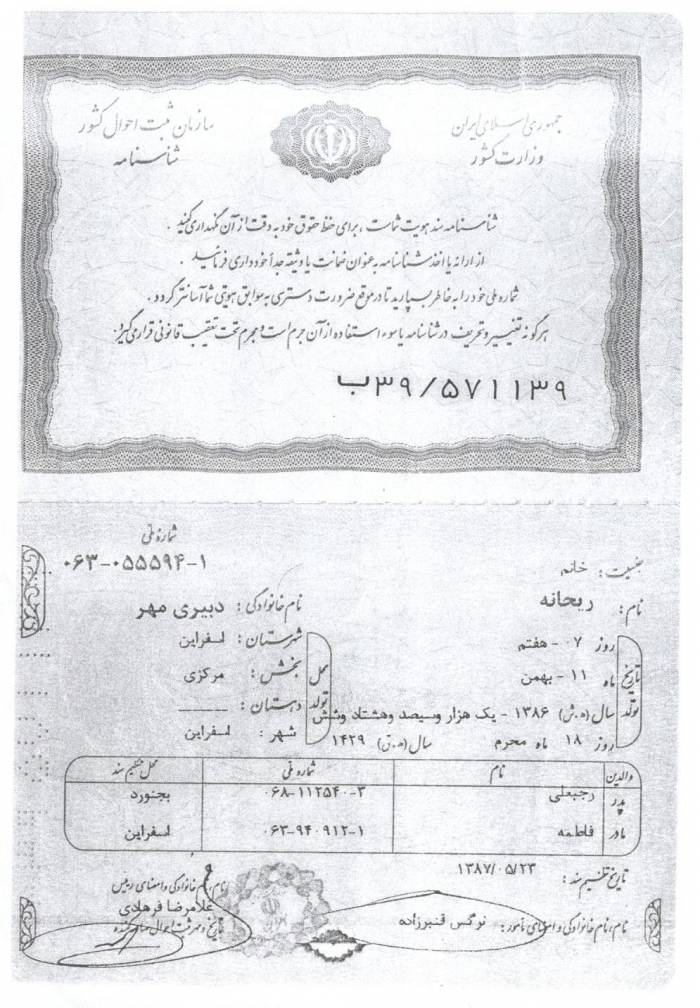 جمهوری اسلامی ایران
وزارت کشور
سازمان ثبت احوال کشور
شناسنامه
شناسنامه سند هویت شماست ، برای حفظ حقوق خود به دقت از آن نگهداری کنید .
از ارائه یا اخذ شناسنامه به عنوان ضمانت یا وثیقه جداً خودداری فرمائید .
شماره ملی خود را به خاطر بسپارید تا در موقع ضرورت دسترسی به سوابق هویتی شما آسانتر گردد .
هرگونه تغییر و تحریف در شناسنامه یا سوء استفاده از آن جرم است و مجرم تحت تعقیب قانونی قرار می گیرد.
ب۳۹/۵۷۱۱۳۹
شماره ملی
۰۶۳-۰۵۵۵۹۴-۱
جنسیت : خانم
نام : ریحانه
نام خانوادگی : دبیری مهر
تاریخ تولد
روز ۰۷ - هفتم
ماه ۱۱ - بهمن
سال (ه.ش) ۱۳۸۶ - یک هزار وسیصد وهشتاد وشش
روز ۱۸ ماه محرم سال (ه.ق) ۱۴۲۹
محل تولد
شهرستان : اسفراین
بخش : مرکزی
دهستان : ـــــــــ
شهر : اسفراین
والدین نام شماره ملی محل تنظیم سند
پدر رجبعلی ۰۶۸-۱۱۲۵۴۰-۳ بجنورد
مادر فاطمه ۰۶۳-۹۴۰۹۱۲-۱ اسفراین
تاریخ تنظیم سند : ۱۳۸۷/۰۵/۲۳
نام، نام خانوادگی و امضای مأمور : نرگس قنبرزاده
نام، نام خانوادگی و امضای رییس
غلامرضا فرهادی